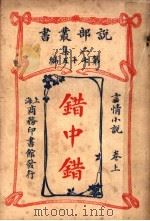 說部叢書
言情小說 卷上
錯中錯
上海商務印書館發行